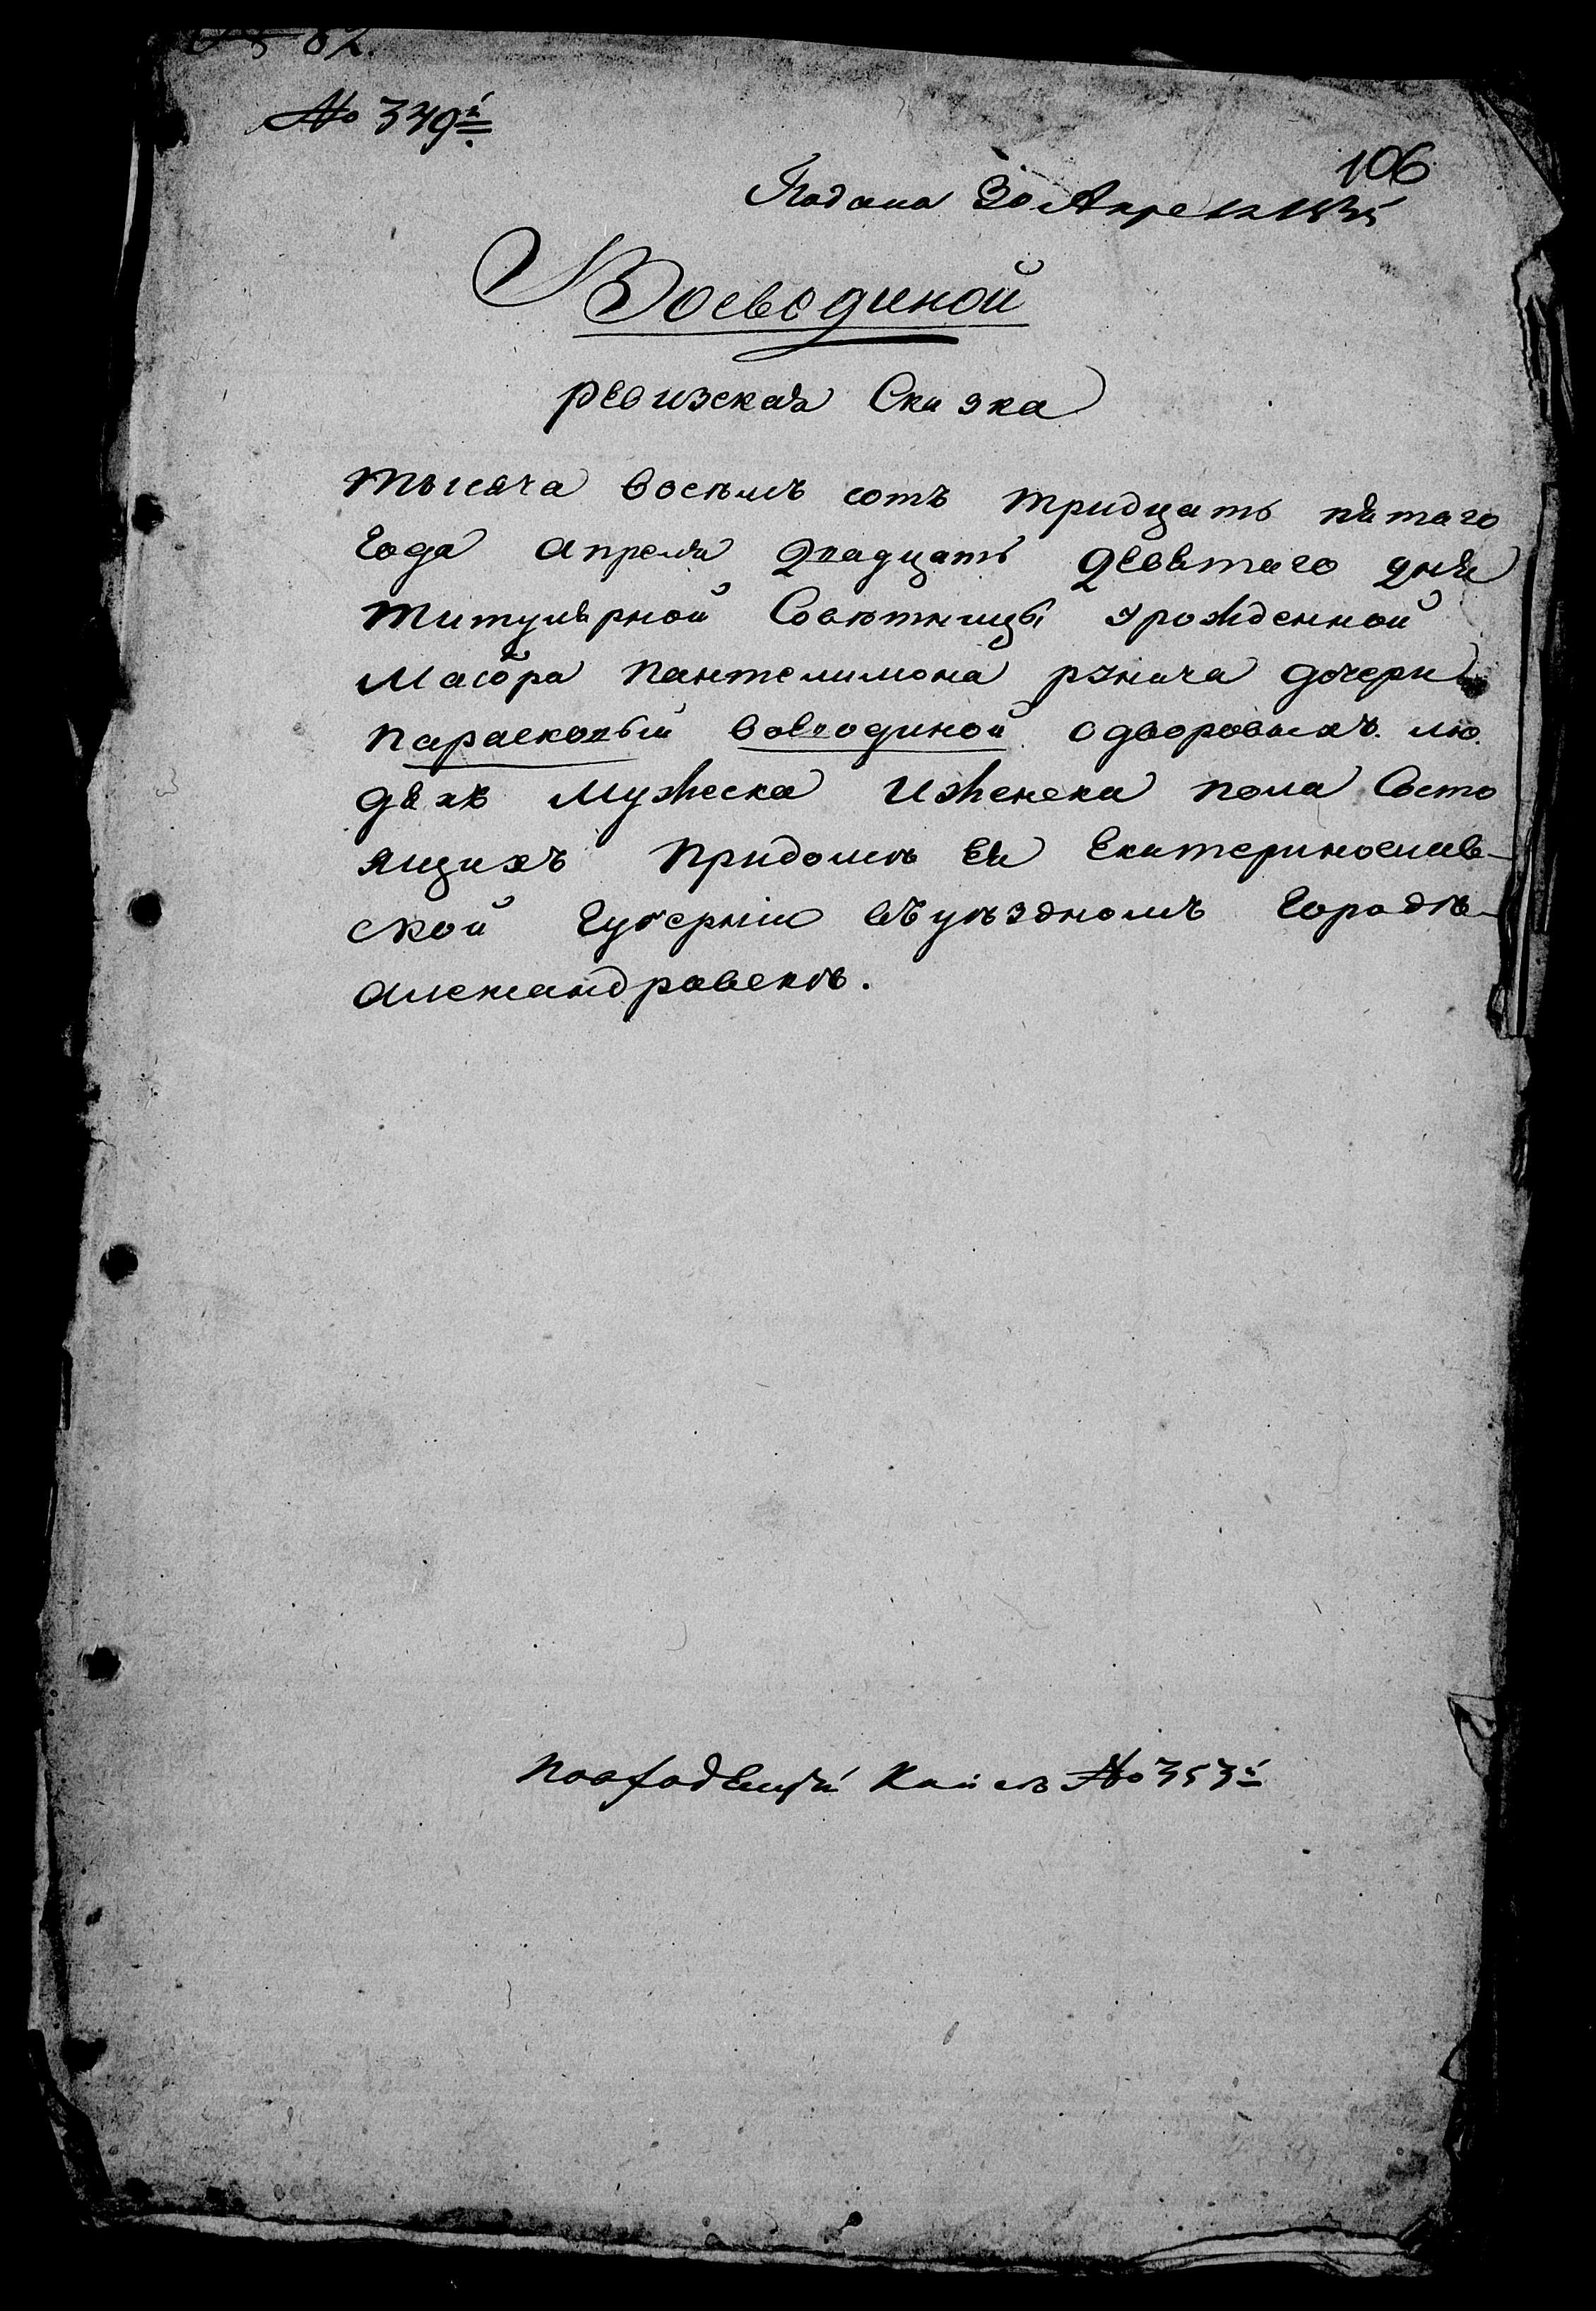 82.
№ 349й
106
Подана 30 Апреля 1835
Воеводиной
ревизская Сказка
тысяча восемь сотъ тридцать пятаго
Года апреля двадцать девятаго дня
титулярной Советницы урожденной
Маіора пантелимона рунича дочери
парасковьи воеводиной одворовыхъ лю
дяхъ мужеска Иженска пола Состо
ящихъ придоме Ея Екатеринослав-
ской Губерніи въуездномъ Городе-
александравске.
№ 353й